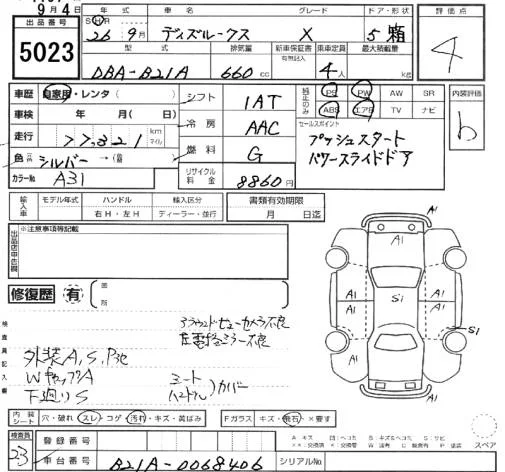 9月4日
出品番号 5023
年式 車名 グレード ドア・形状
S H R 26 9月 ディズルークス X 5 箱
型式 排気量 新車保証書 有無記入 乗車定員 最大積載量
DBA-B21A 660cc 4人 kg
評価点 4
車歴 自家用・レンタ( )
車検 年 月( )日
走行 77,821 km マイル
色 シルバー → (
カラーNo A31
シフト 1AT
冷房 AAC
燃料 G
リサイクル料金 8860円
純正のみ PS PW AW SR
ABS エアB TV ナビ
セールスポイント
プッシュスタート
パワースライドドア
内装評価 b
輸入車 モデル年式 ハンドル 輸入区分
右H・左H ディーラー・並行
書類有効期限
月 日迄
出品店申告欄 ※注意事項等記載
修復歴 有 ( 箇所
検査員記入欄
アラウンドビューカメラ不良
左電格ミラー不良
外装A,S,P他
Wキョップ
下廻りS
シート
ハンドル
)カバー
A1
A1
A1 A1
S1
A1 A1
S1
A1
A1
内装シート 穴・破れ・スレ・コゲ・汚れ・キズ・黄ばみ
Fガラス キズ・飛石・×要す
検査員 23
登録番号
車台番号 B21A-0068406
シリアルNo.
スペア